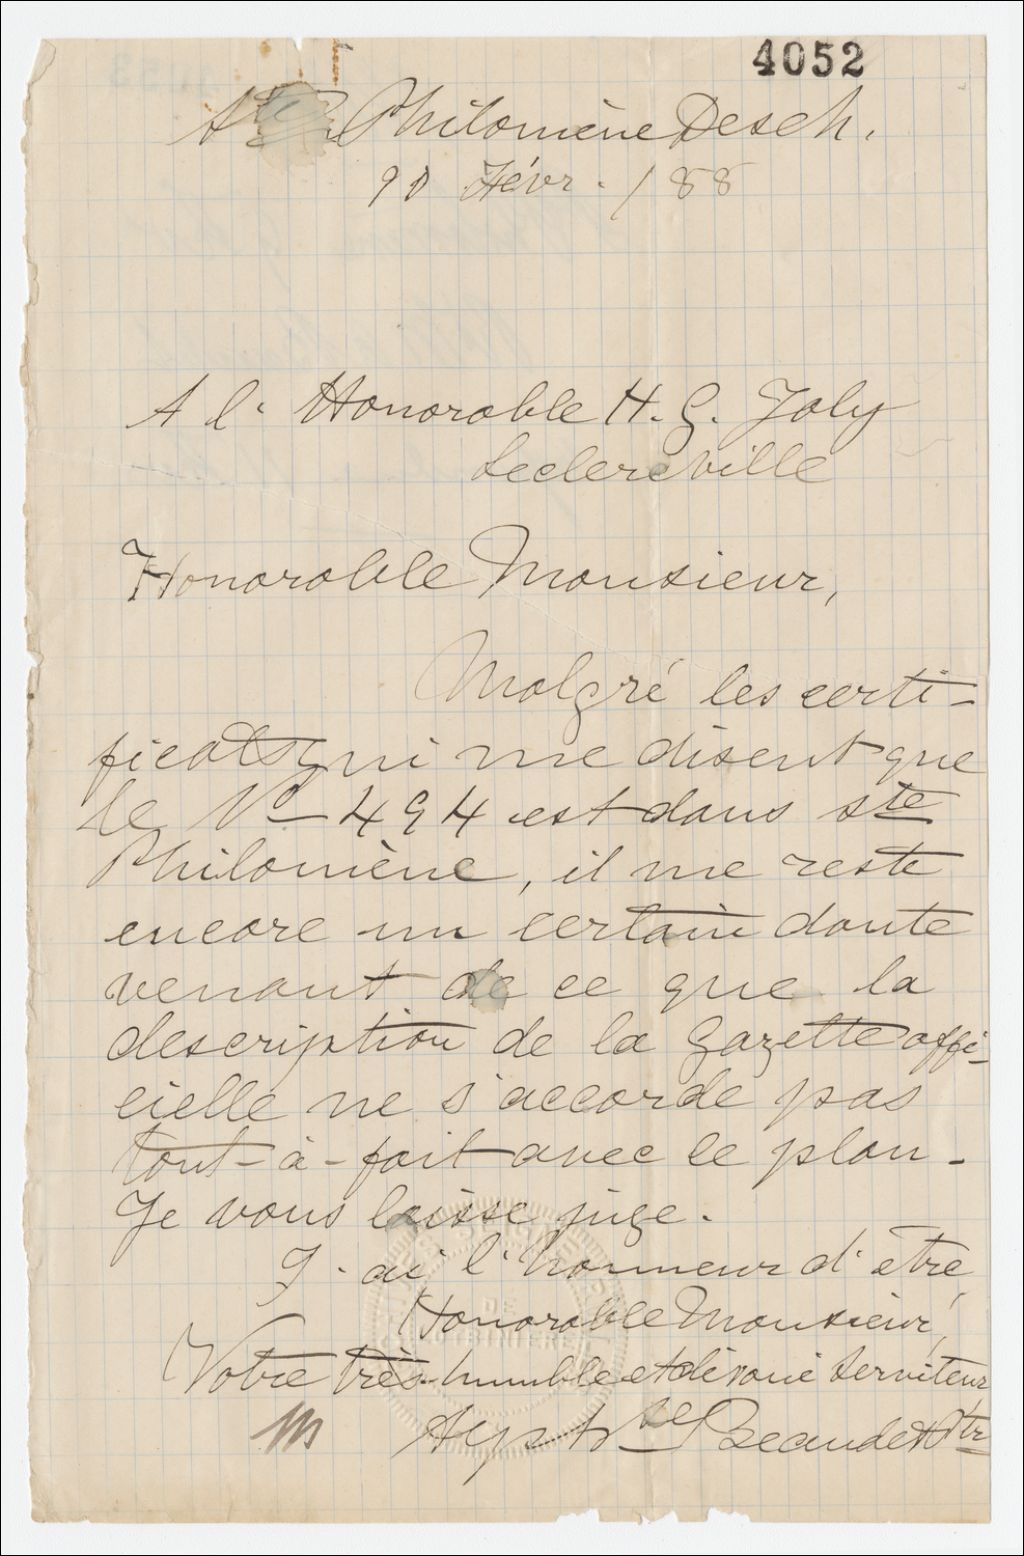 4052
Ste Philomène Desch.
20 Févr. /88
A l'Honorable H. G. Joly
Leclercville
Honorable Monsieur,
Malgré les certi-
ficats qui me disent que
le No 494 est dans ste
Philomène, il me reste
encore un certain doute
venant de ce que la
description de la Gazette offi-
cielle ne s'accorde pas
tout-à-fait avec le plan.
Je vous laisse juge.
J'ai l'honneur d'être
Honorable Monsieur,
Votre très-humble et dévoué serviteur
Beaudet Ptre